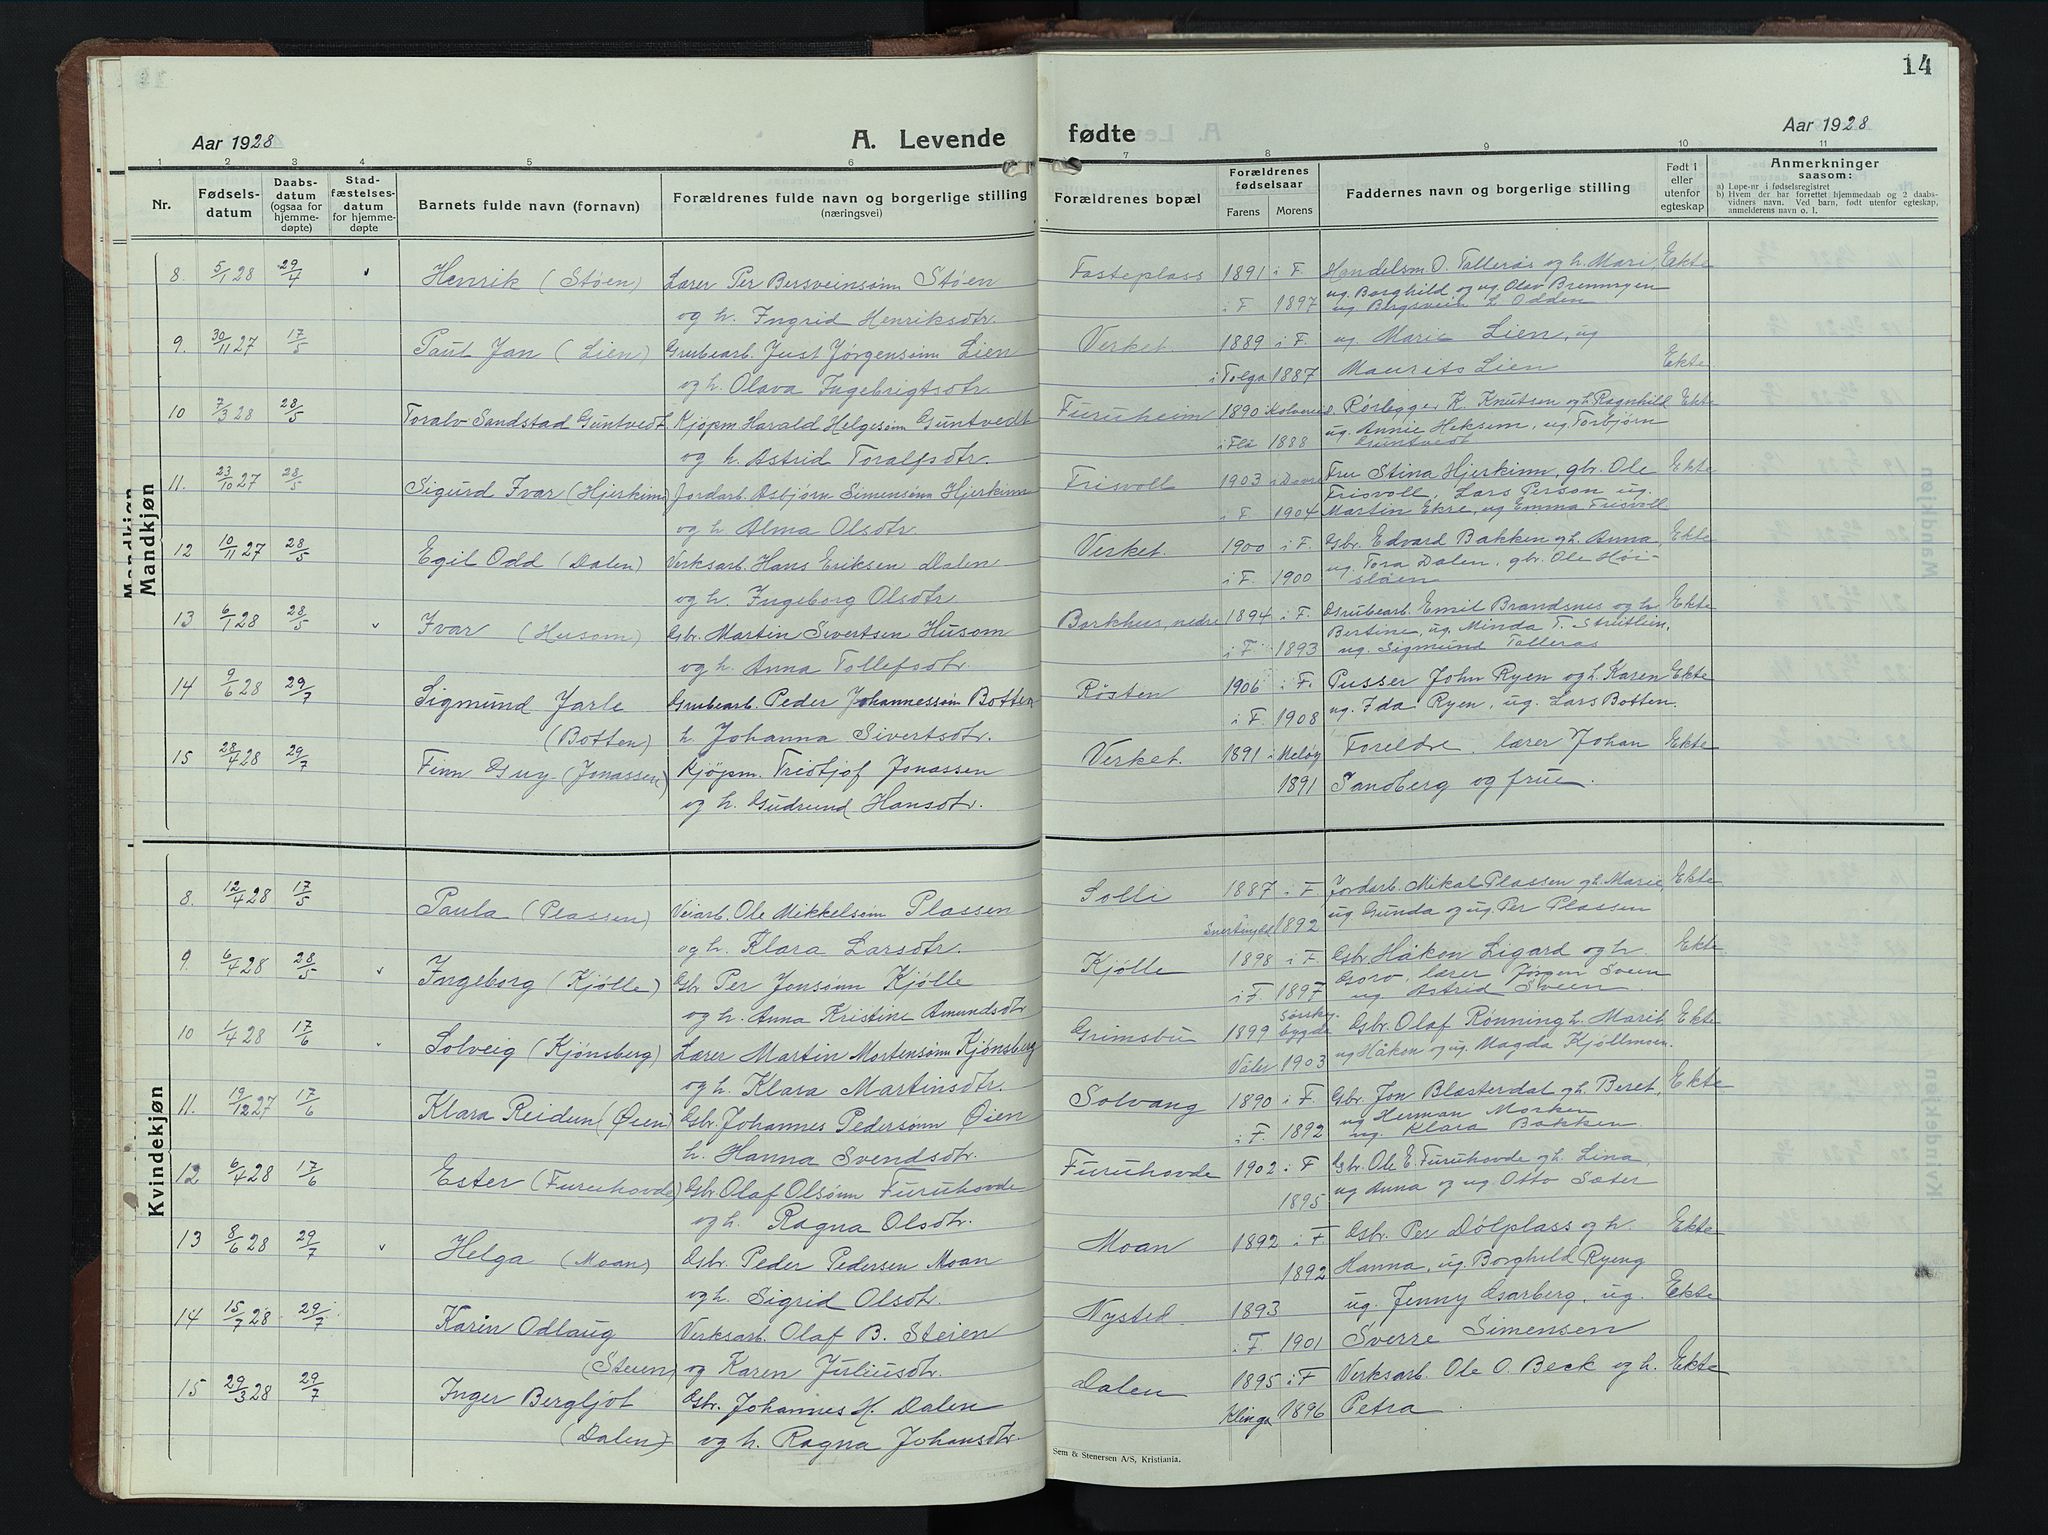 14
Aar 1928 A. Levende fødte Aar 1928
1 2 3 4 5 6 7 8 9 10 11
Nr. Fødsels-datum Daabs-datum (ogsaa for hjemme-døpte) Stad-fæstelses-datum for hjemme-døpte Barnets fulde navn (fornavn) Forældrenes fulde navn og borgerlige stilling (næringsvei) Forældrenes bopæl Forældrenes fødselsaar Farens Morens Faddernes navn og borgerlige stilling Født i eller utenfor egteskap Anmerkninger saasom:
a) Løpe-nr i fødselsregistret
b) Hvem der har forrettet hjemmedaab og 2 daabs-vidners navn. Ved barn, født utenfor egteskap, anmelderens navn o. l.
Mandkjøn
8. 5/1 28 29/4 Henrik (Støen) Lærer Per Bersveinsønn Støen Fasteplass 1891 i F. Handelsm. O. Tallerås og h. Mari, Ekte
ug. Borghild og ug. Olav Brennryen
og h. Ingrid Henriksdtr. i F. 1897 ug. Bergsvein L. Odden
9. 30/11 27 17/5 Paul Jan (Lien) Grubearb. Just Jørgensønn Lien Verket. 1889 i F. ug. Marie Lien, ug
og h. Olava Ingebrigtsdtr. i Tolga 1887 Maurits Lien Ekte
10 7/3 28 28/5 Toralv Sandstad Guntvedt Kjøpm Harald Helgesønn Guntvedt Furuheim 1890 Rørlegger K. Knutsen og h. Ragnhild Ekte
ug. Annie Heksem, ug Torbjørn
og h. Astrid Toralfsdtr. i Flå 1888 Guntvedt
11. 23/10 27 28/5 Sigurd Ivar (Hjerkinn) Jordarb. Asbjørn Simensønn Hjerkinn Frisvoll 1903 i Dovre Fru Stina Hjerkinn, gbr. Ole Ekte
Frisvoll, Lars Person ug.
og h Alma Olsdtr. i F. 1904 Martin Ekre, ug Emma Frisvoll
12 10/11 27 28/5 Egil Odd (Dalen) Verksarb. Hans Eriksen Dalen Verket. 1900 i F. Gbr. Edvard Bakken og h. Anna, Ekte
ug. Tora Dalen, gbr. Ole Høi-
og h. Ingeborg Olsdtr. i F. 1900 sløen
13 6/1 28 28/5 Ivar (Husom) Gbr. Martin Sivertsen Husom Barkhus, nedre 1894 i F. Grubearb. Emil Brandsnes og h. Ekte
Bertine, ug. Minda T. Streitlien,
og h. Anna Tollefsdtr. i F. 1893 ug. Sigmund Tallerås
14 9/6 28 29/7 Sigmund Jarle Grubearb. Peder Johannessønn Botten Røsten 1906 i F. Pusser John Ryen og h. Karen Ekte
(Botten) h. Johanna Sivertsdtr. i F. 1908 ug. Ida Ryen, ug. Lars Botten.
15 28/4 28 29/7 Finn Guy (Jonassen) Kjøpm. Fridtjof Jonassen Verket. 1891 i Meløy Foreldre, lærer Johan Ekte
og h. Gudrund Hansdtr. 1891 Sandberg og frue.
Kvindekjøn
8. 12/4 28 17/5 Paula (Plassen) Veiarb. Ole Mikkelsønn Plassen Solli 1887 i F. Jordarb. Mikal Plassen og h. Marie, Ekte
og h. Klara Larsdtr. 1892 ug Gunda og ug. Per Plassen
9. 6/4 28 28/5 Ingeborg (Kjølle) Gbr Per Jonsønn Kjølle Kjølle 1898 i F. Gbr Håkon Ligard og h. Ekte
Goro, lærer Jørgen Sveen
og h. Anna Kristine Amundsdtr i F. 1897 ug Astrid Sveen.
10 1/4 28 17/6 Solveig (Kjønsberg) Lærer Martin Mortensønn Kjønsberg Grimsbu 1899 Sørskogbygda Gbr. Olaf Rønning h. Marit, Ekte
og h. Klara Martinsdtr. Våler 1903 ug Håkon og ug. Magda Kjøllmoen.
11. 19/12 27 17/6 Klara Reidun (Øien) Gbr. Johannes Pedersønn Øien Solvang 1890 i F. Gbr. Jon Blæsterdal og h. Beret, Ekte
ug Herman Morken
h. Hanna Svendsdtr. i F. 1892 ug. Klara Bakken.
12 6/4 28 17/6 Ester (Furuhovde) Gbr Olaf Olsønn Furuhovde Furuhovde 1902 i F Gbr. Ole E. Furuhovde og h. Lina,
og h. Ragna Olsdtr. 1895 ug Anna og ug Otto Sæter
13 8/6 28 29/7 Helga (Moan) Gbr. Peder Pedersen Moan Moan 1892 i F. Gbr. Per Dølplass og h. Ekte
og h. Sigrid Olsdtr. 1892 Hanna, ug. Borghild Ryeng
14 15/7 28 29/7 Karin Odlaug Verksarb. Olaf B. Steien Nysted. 1893 ug. Jenny Aarberg, ug. Ekte
(Steien) og Karen Juliusdtr. i F. 1901 Sverre Simensen
15 29/3 28 29/7 Inger Bergljot Gbr. Johannes H. Dalen Dalen 1895 i F Verksarb. Ole O. Beck og h. Ekte
(Dalen) og h. Ragna Johansdtr. Klinga 1896 Petra.
Sem & Stenersen A/S, Kristiania.